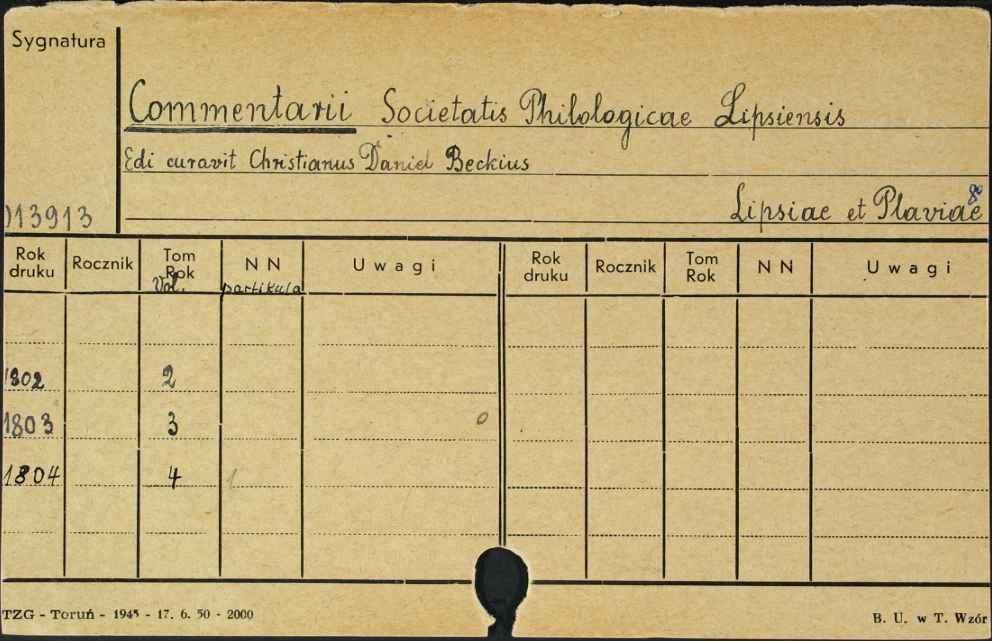 Sygnatura
Commentarii Societatis Philologicae Lipsiensis
Edi curavit Christianus Daniel Beckius
Lipsiae et Plaviae 8°
013913
Rok druku Rocznik Tom Rok Vol. N N partikula Uwagi Rok druku Rocznik Tom Rok N N Uwagi
1802 2
1803 3 0
1804 4 1
TZG - Toruń - 1945 - 17. 6. 50 - 2000
B. U. w T. Wzór